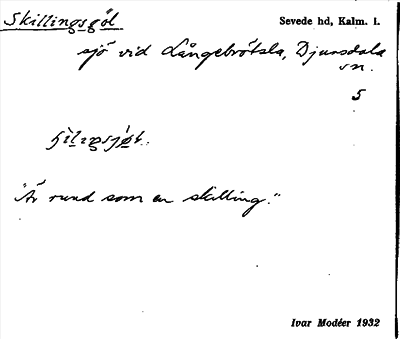 Skillingsgöl
Sevede hd, Kalm. l.
sjö vid Långebrötsla, Djursdala
sn.
5
"Är rund som en skilling."
Ivar Modéer 1932